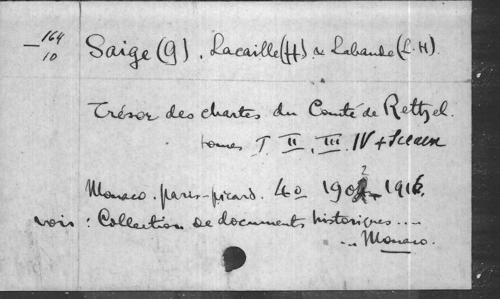 — 164
10
Saige (G). Lacaille (H) & Labande (L.H)
Trésor des chartes du Comté de Rethel.
tomes I. II, III. IV + Sceaux
Monaco. paris-picard. 4o 1902-1916.
voir : Collection de documents historiques ....
... Monaco.